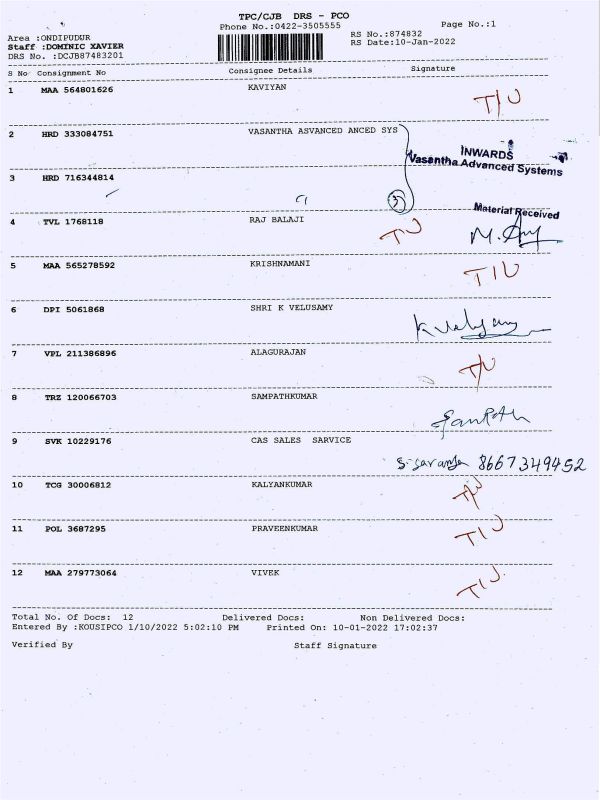 TPC/CJB DRS - PCO
Phone No.:0422-3505555
Page No.:1
Area :ONDIPUDUR
Staff :DOMINIC XAVIER
DRS No. :DCJB87483201
RS No.:874832
RS Date:10-Jan-2022
S No Consignment No Consignee Details Signature
1 MAA 564801626 KAVIYAN T/U
2 HRD 333084751 VASANTHA ASVANCED ANCED SYS
INWARDS
Vasantha Advanced Systems
3 HRD 716344814
3
Material Received
4 TVL 1768118 RAJ BALAJI T/U
5 MAA 565278592 KRISHNAMANI T/U
6 DPI 5061868 SHRI K VELUSAMY
7 VPL 211386896 ALAGURAJAN T/U
8 TRZ 120066703 SAMPATHKUMAR
9 SVK 10229176 CAS SALES SARVICE
8667349452
10 TCG 30006812 KALYANKUMAR T/U
11 POL 3687295 PRAVEENKUMAR T/U
12 MAA 279773064 VIVEK T/U
Total No. Of Docs: 12 Delivered Docs: Non Delivered Docs:
Entered By :KOUSIPCO 1/10/2022 5:02:10 PM Printed On: 10-01-2022 17:02:37
Verified By Staff Signature